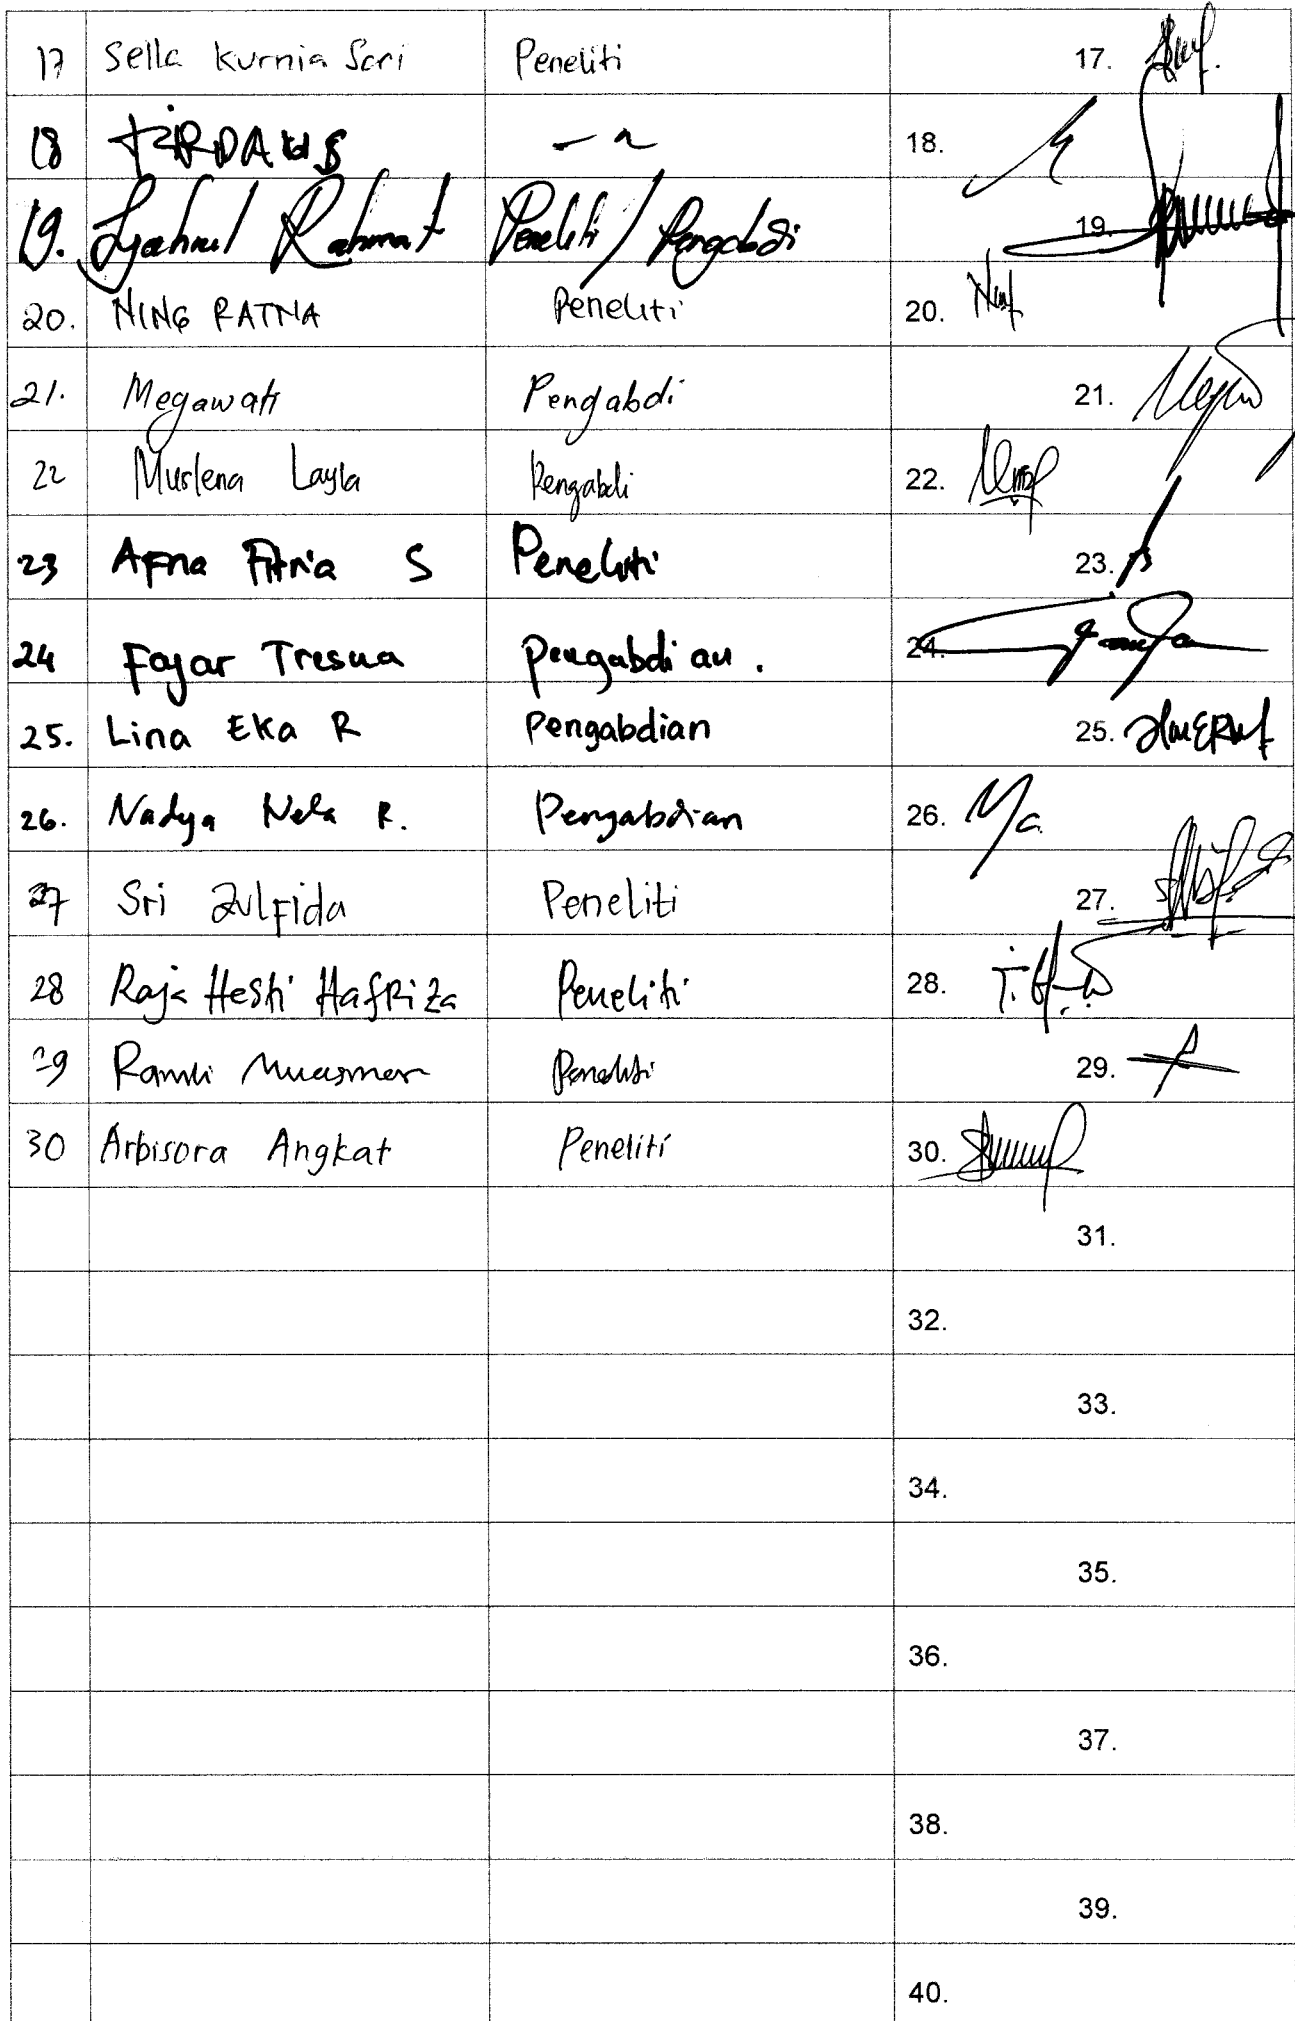 17 Sella Kurnia Sari Peneliti 17.
18 FIRDAUS 18.
19. Syahrul Rahmat Peneliti / Pengabdi 19.
20. NING RATNA Peneliti 20.
21. Megawati Pengabdi 21.
22 Murlena Layla Pengabdi 22.
23 Afna Fitria S Peneliti 23.
24 Fajar Tresna Pengabdian. 24.
25. Lina Eka R Pengabdian 25.
26. Nadya Nela R. Pengabdian 26.
27 Sri Zulfida Peneliti 27.
28 Raja Hesti Hafriza Peneliti 28.
29 Ramli Muasmara Peneliti 29.
30 Arbisora Angkat Peneliti 30.
31.
32.
33.
34.
35.
36.
37.
38.
39.
40.